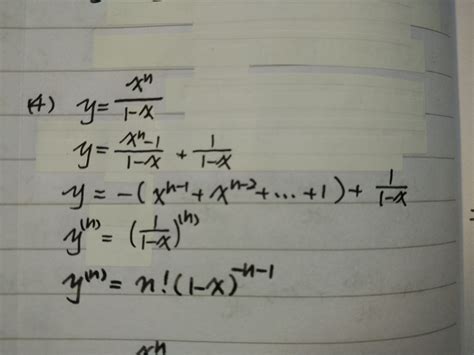 (4) y = x^n/(1-x)
y = (x^n-1)/(1-x) + 1/(1-x)
y = -(x^{n-1}+x^{n-2}+...+1)+ 1/(1-x)
y^{(n)} = (1/(1-x))^{(n)}
y^{(n)} = n!(1-x)^{-n-1}
x^n